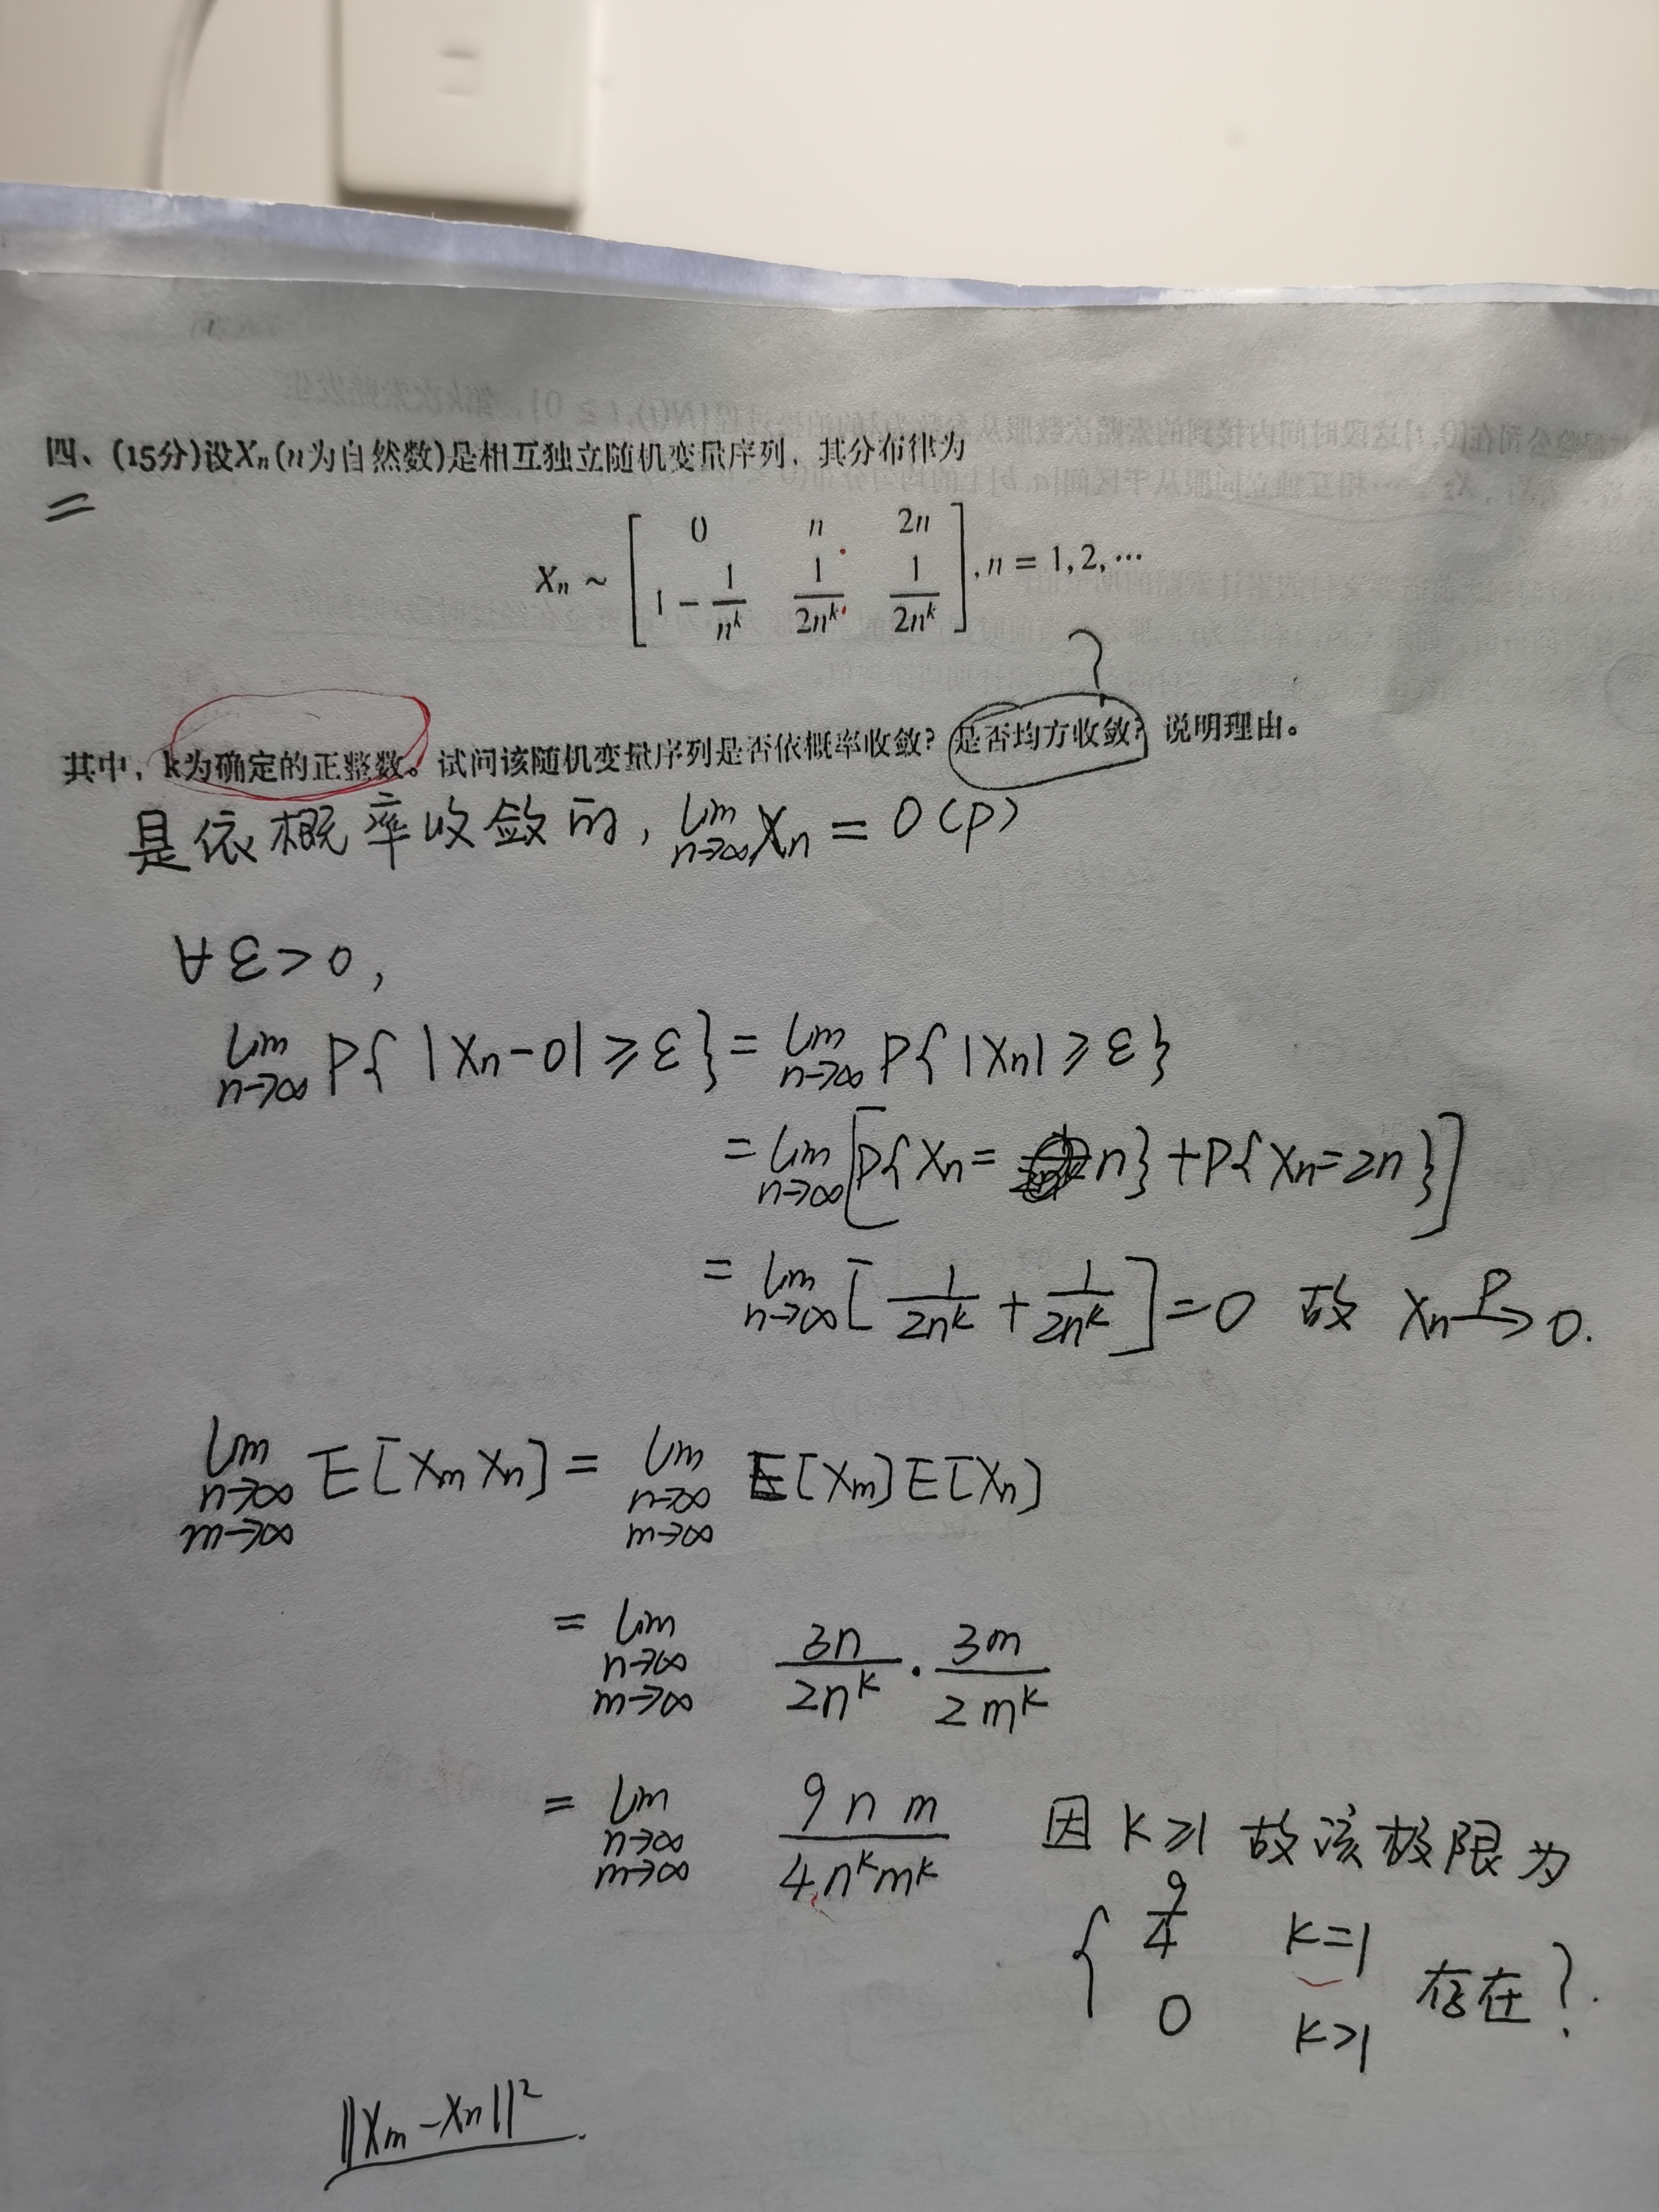 四、(15分)设Xₙ(n为自然数)是相互独立随机变量序列，其分布律为
Xₙ ~ [ 0 n 2n ; 1 − 1/nᵏ 1/2nᵏ 1/2nᵏ ], n = 1,2,⋯
?
其中，k为确定的正整数。试问该随机变量序列是否依概率收敛？是否均方收敛？说明理由。
是依概率收敛的, lim n→∞ Xn = 0 (p)
∀ ε > 0,
lim n→∞ P{ |Xn−0| ≥ ε } = lim n→∞ P{ |Xn| ≥ ε }
= lim n→∞ [P{ Xn = n } + P{ Xn = 2n }]
= lim n→∞ [ 1/2nᵏ + 1/2nᵏ ] = 0 故 Xn →ᴾ 0.
lim n→∞ m→∞ E[Xm Xn] = lim n→∞ m→∞ E[Xm]E[Xn]
= lim n→∞ m→∞ 3n/2nᵏ · 3m/2mᵏ
= lim n→∞ m→∞ 9nm/4nᵏmᵏ 因 k≥1 故该极限为
{ 9/4 k=1
0 k>1 存在?.
||Xm−Xn||².